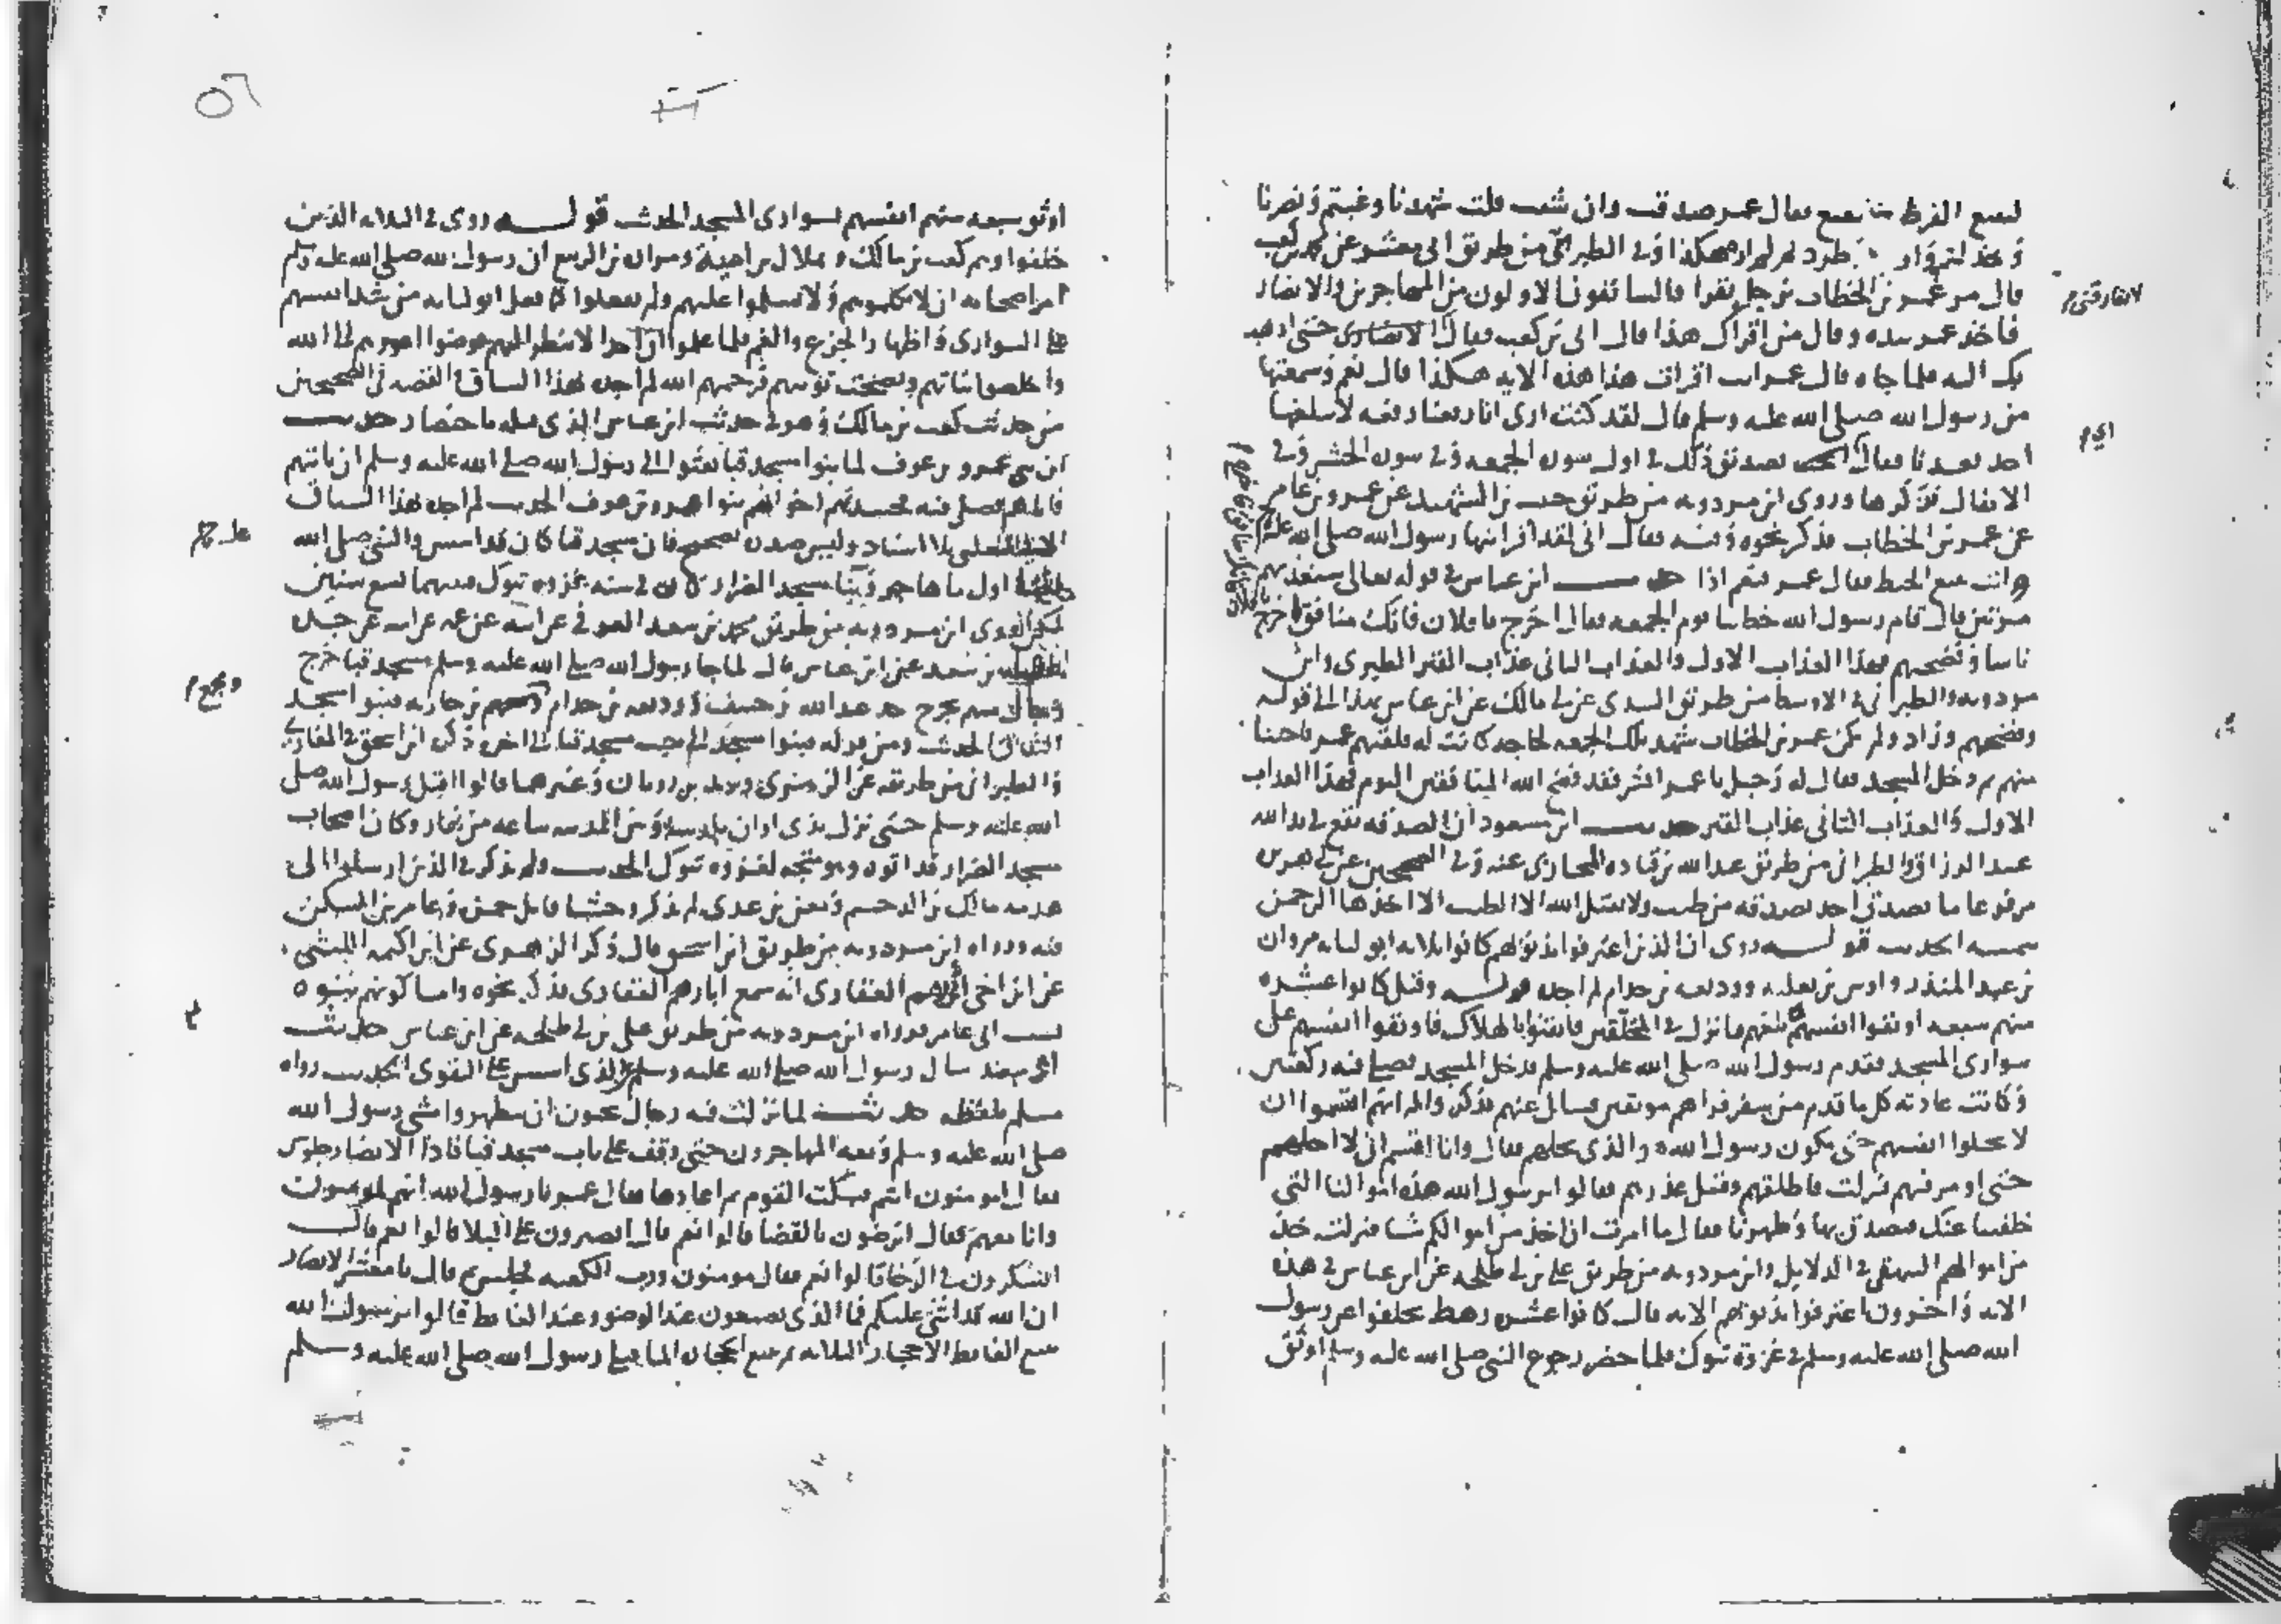 لتبيع القرظ بالبقيع فقال عمر صدقت وان شئت قلت شهدنا وغبتم ونصرنا
وخذلتم وآوينا وطردتم لم اره هكذا وفي الطبري من طريق ابي معشر عن محمد بن كعب
قال مر عمر بن الخطاب برجل يقرا والسابقون الاولون من المهاجرين والانصار
فاخذ عمر بيده وقال من اقراك هذا قال ابي بن كعب فقال لا تفارقني حتى اذهب
بك اليه فلما جاه قال عمر انت اقرات هذا هذه الاية هكذا قال نعم وسمعتها
من رسول الله صلى الله عليه وسلم قال لقد كنت ارى انا رفعنا رفعة لا يبلغها
احد بعدنا فقال ابي تصديق ذلك في اول سورة الجمعة وفي سورة الحشر وفي
الانفال فذكرها وروى ابن مردويه من طريق حبيب بن الشهيد عن عمرو بن عامر
عن عمر بن الخطاب فذكر نحوه وفيه فقال ابي لقد اقرانيها رسول الله صلى الله عليه
وانت تبيع الخبط فقال عمر فنعم اذا حديث ابن عباس في قوله تعالى سنعذبهم
مرتين قال قام رسول الله خطيبا يوم الجمعة فقال اخرج يا فلان فانك منافق فاخرج
ناسا وفضحهم فهذا العذاب الاول والعذاب الثاني عذاب القبر الطبري وابن
مردويه والطبراني في الاوسط من طريق السدي عن ابي مالك عن ابن عباس بهذا الى قوله
وفضحهم وزاد ولم يكن عمر بن الخطاب شهد تلك الجمعة لحاجة كانت له فلقيهم عمر فاختبا
منهم ثم دخل المسجد فقال له رجل يا عمر ابشر فقد فضح الله المنافقين اليوم فهذا العذاب
الاول والعذاب الثاني عذاب القبر حديث ابن مسعود ان الصدقة تقع في يد الله
عبد الرزاق والطبراني من طريق عبد الله بن قتادة المحاربي عنه وفي الصحيحين عن ابي هريرة
مرفوعا ما تصدق احد بصدقة من طيب ولا يقبل الله الا الطيب الا اخذها الرحمن
بيمينه الحديث قوله روى ان الذين اعترفوا بذنوبهم كانوا ثلاثة ابو لبابة مروان
بن عبد المنذر واوس بن ثعلبة ووديعة بن حرام لم اجده قوله وقيل كانوا عشرة
منهم سبعة اوثقوا انفسهم بلغهم ما نزل في المتخلفين فايقنوا بالهلاك فاوثقوا انفسهم على
سواري المسجد فقدم رسول الله صلى الله عليه وسلم فدخل المسجد فصلى فيه ركعتين
وكانت عادته كل ما قدم من سفر فراهم موثقين فسال عنهم فذكر والم انهم اقسموا ان
لا يحلوا انفسهم حتى يكون رسول الله هو الذي يحلهم فقال وانا اقسم ان لا احلهم
حتى اومر فيهم فنزلت فاطلقهم وقبل عذرهم فقالوا يرسول الله هذه اموالنا التي
خلفتنا عنك فتصدق بها وطهرنا فقال ما امرت ان اخذ من اموالكم شيا فنزلت خذ
من اموالهم البيهقي في الدلايل وابن مردويه من طريق علي بن ابي طلحة عن ابن عباس في هذه
الاية واخرون اعترفوا بذنوبهم الاية قال كانوا عشرة رهط تخلفوا عن رسول
الله صلى الله عليه وسلم في غزوة تبوك فلما حضر رجوع النبي صلى الله عليه وسلم اوثق
لا تفارقني م
ابي م
اوثق سبعة منهم انفسهم بسواري المسجد الحديث قوله روى في الثلاثة الذين
خلفوا وهم كعب بن مالك وهلال بن امية ومرارة بن الربيع ان رسول الله صلى الله عليه وسلم
امر اصحابه ان لا يكلموهم ولا يسلموا عليهم ولم يفعلوا كما فعل ابو لبابة من شد انفسهم
على السواري واظهار الجزع والغم فلما علموا ان احدا لا ينظر اليهم فوضوا امورهم الى الله
واخلصوا نياتهم ونصحت توبتهم فرحمهم الله لم اجده بهذا السياق والقصة في الصحيحين
من حديث كعب بن مالك وهو في حديث ابن عباس الذي قبله باختصار حديث
ان بني عمرو بن عوف لما بنوا مسجد قبا بعثوا الى رسول الله صلى الله عليه وسلم ان ياتيهم
فاتاهم فصلى فيه فحسدتهم اخوانهم بنوا عمرو بن عوف الحديث لم اجده بهذا السياق
الا في الثعلبي بلا اسناد وليس صدره بصحيح فان مسجد قبا كان قد اسس والنبي صلى الله
بقبا اول ما هاجر وبنا مسجد الضرار كان في سنة غزوة تبوك فبينهما تسع سنين
لكن روى ابن مردويه من طريق محمد بن سعد العوفي عن ابيه عن عمه عن ابيه عن جده
عطية بن سعد عن ابن عباس قال لما بنا رسول الله صلى الله عليه وسلم مسجد قبا خرج
رجال منهم بحزج جد عبد الله بن حنيف ووديعة بن حرام بن جارية فبنوا مسجد
النفاق الحديث ومن قوله فبنوا مسجدا الى جنب مسجد قبا الى اخره ذكره ابن اسحق في المغازي
والطبراني من طريقه عن الزهري ويزيد بن رومان وغيرهما قالوا اقبل رسول الله صلى
الله عليه وسلم حتى نزل بذي اوان بلد بينه وبين المدينة ساعة من نهار وكان اصحاب
مسجد الضرار قد اتوه وهو متجه لغزوة تبوك الحديث ولم يذكر في الذين ارسلوا الى
هدمه مالك بن الدخشم ومعن بن عدي لم يذكر وحشيا قاتل حمزة وعامر بن السكن
فيه ورواه ابن مردويه من طريق ابن اسحق قال ذكر الزهري عن ابن اكيمة الليثي
عن ابن اخي ابي رهم الغفاري انه سمع ابا رهم الغفاري فذكر نحوه واما كونهم بنوه
بسبب ابي عامر فرواه ابن مردويه من طريق علي بن ابي طلحة عن ابن عباس حديث
ابي سعيد سال رسول الله صلى الله عليه وسلم عن الذي اسس على التقوى الحديث رواه
مسلم بلفظه حديث لما نزلت فيه رجال يحبون ان يتطهروا مشى رسول الله
صلى الله عليه وسلم ومعه المهاجرون حتى وقف على باب مسجد قبا فاذا الانصار جلوس
فقال امومنون انتم فسكت القوم ثم اعادها فقال عمر يا رسول الله انهم لمومنون
وانا معهم فقال اترضون بالقضا قالوا نعم قال اتصبرون على البلا قالوا نعم قال
اتشكرون في الرخا قالوا نعم فقال مومنون ورب الكعبة فجلس ثم قال يا معشر الانصار
ان الله قد اثنى عليكم فما الذي تصنعون عند الوضو وعند الغايط قالوا يرسول الله
نتبع الغايط الاحجار الثلاثة ثم نتبع الحجارة الما فتلى رسول الله صلى الله عليه وسلم